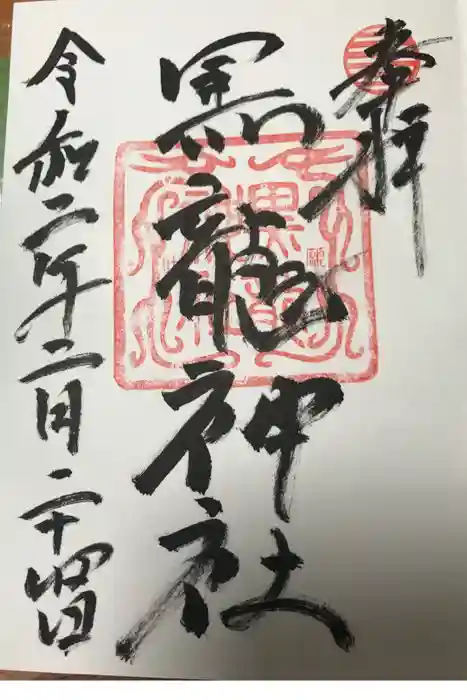 奉拝
黒龍神社
令和二年二月二十四日